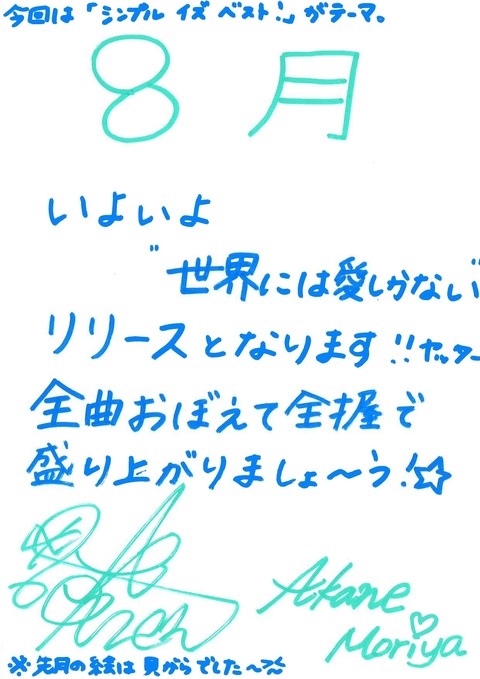 今回は「シンプル イズ ベスト!」がテーマ。
8月
いよいよ
"世界には愛しかない"
リリースとなります!!ヤッター
全曲おぼえて全握で
盛り上がりましょ〜う!☆
Akane
Moriya
※先月の絵は貝がらでした〜